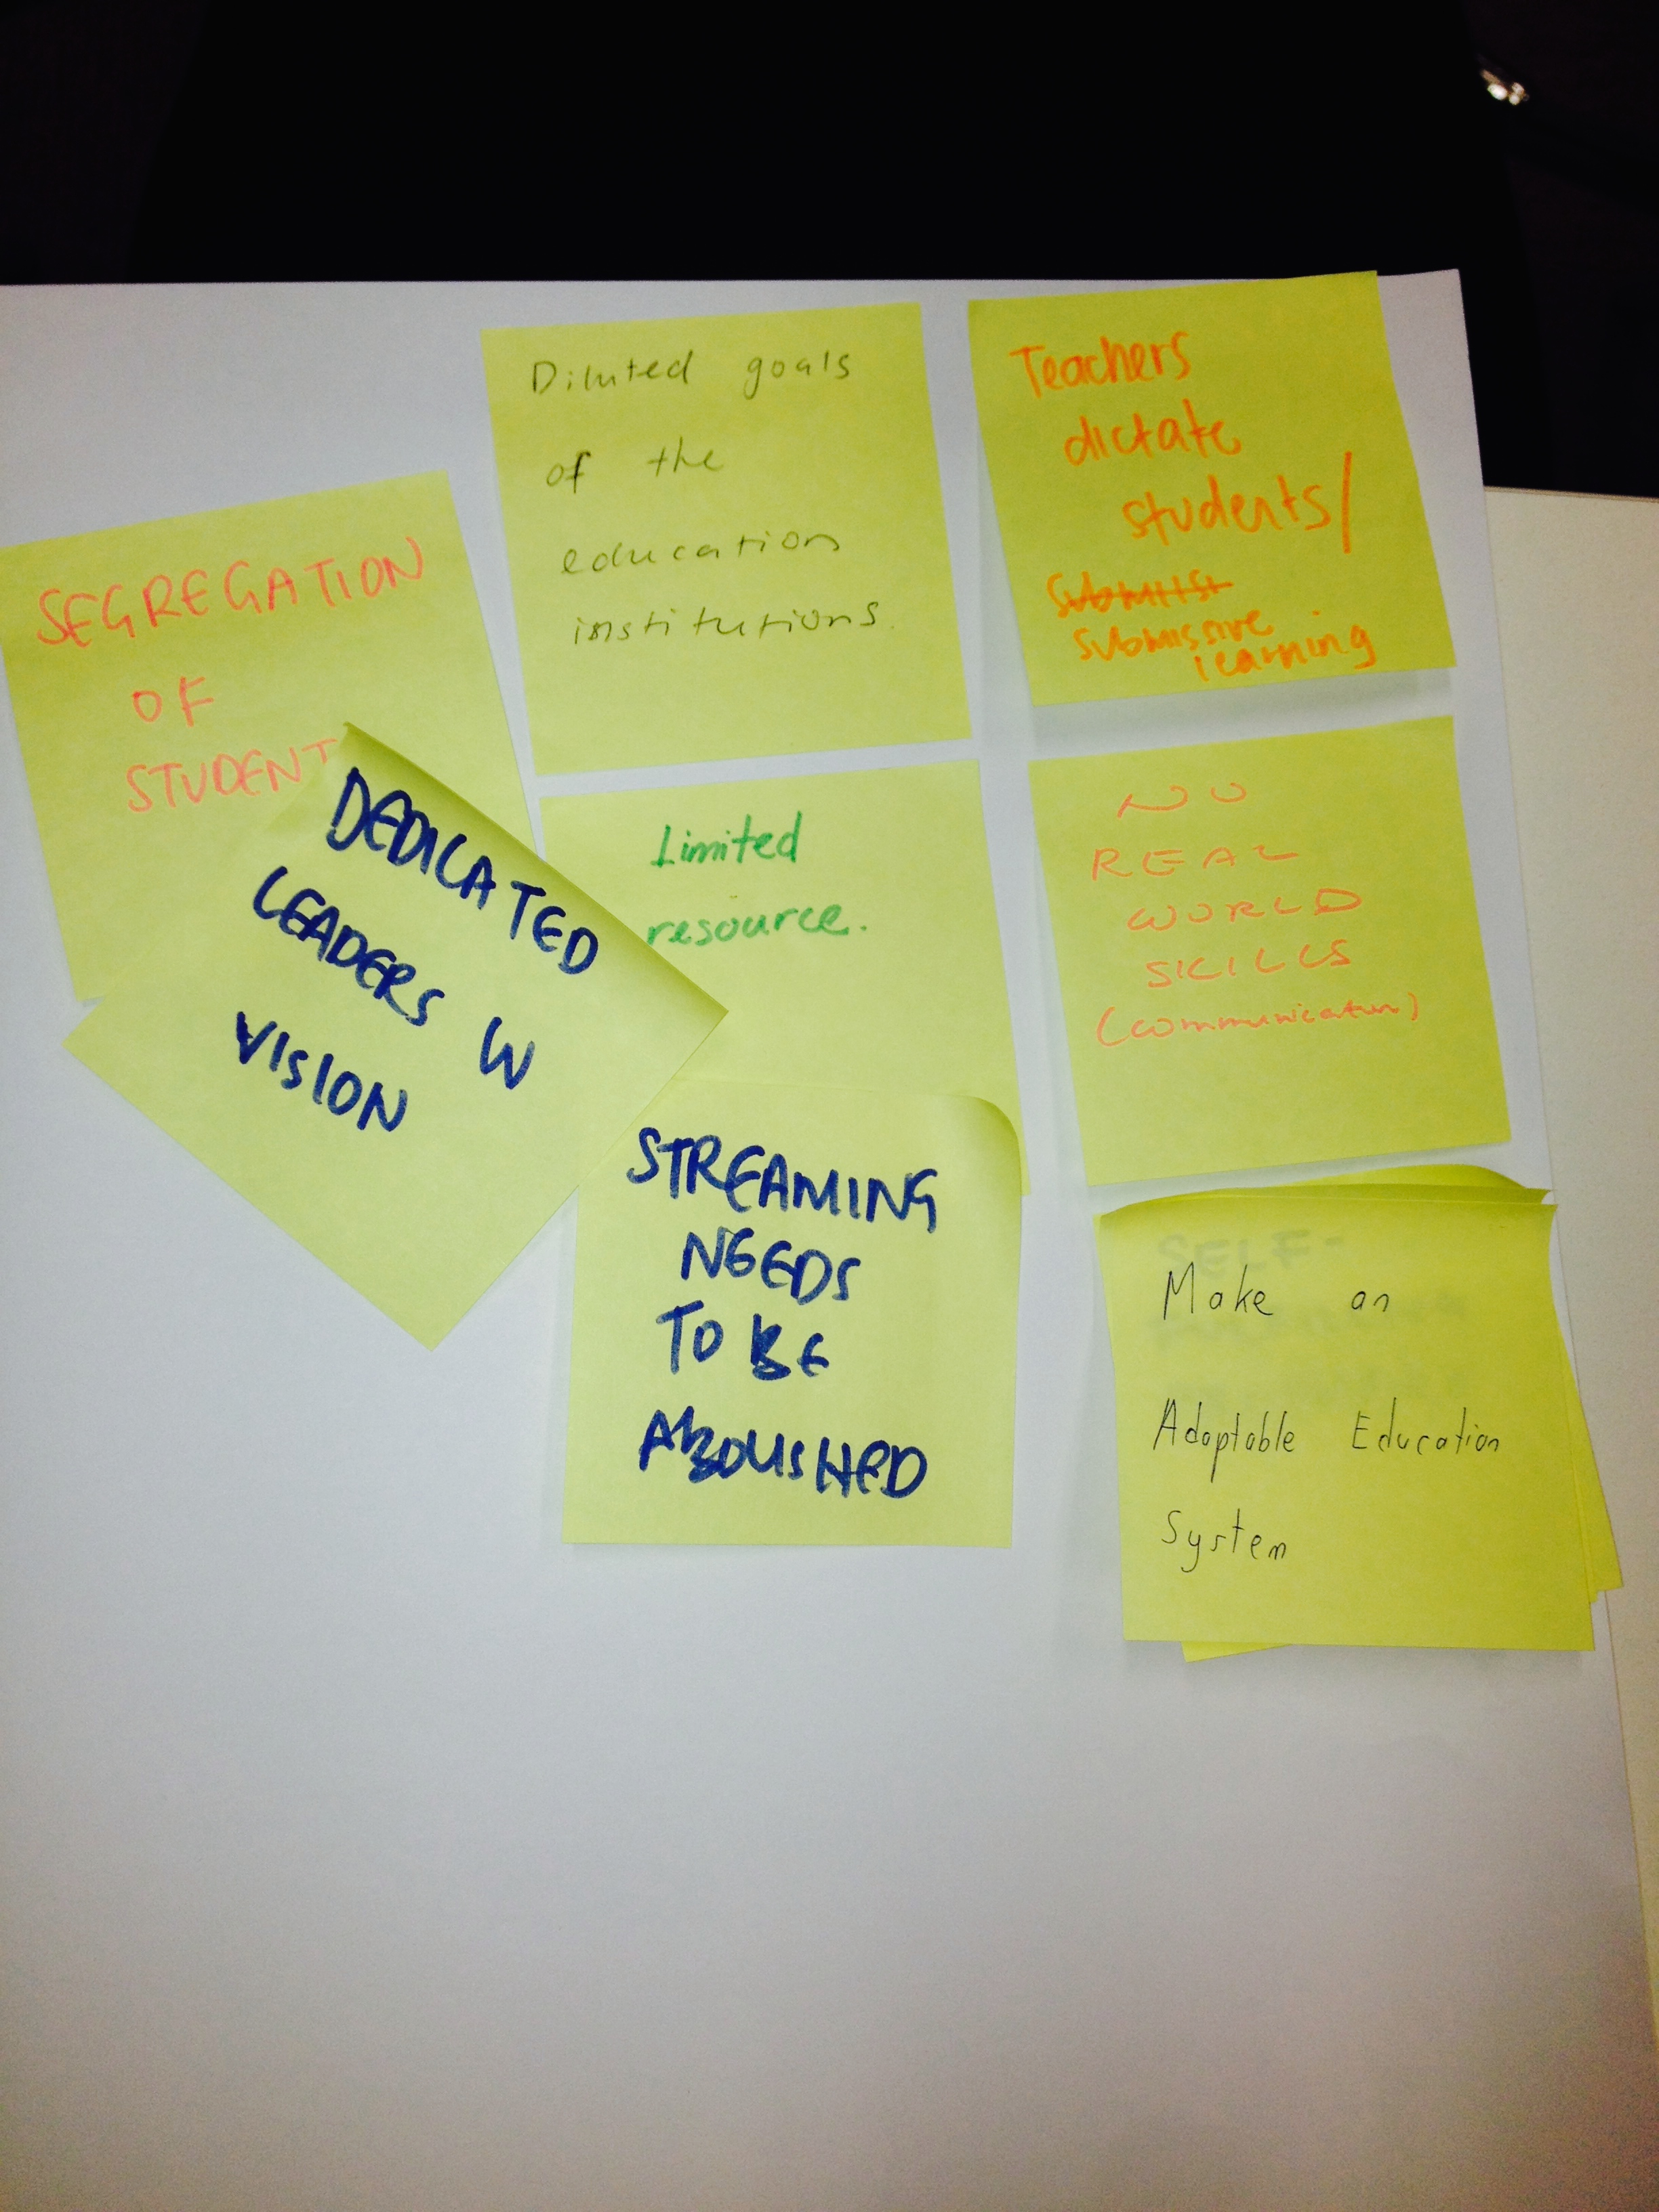 SEGREGATION
OF
STUDENT
Diluted goals
of the
education
institutions.
Teachers
dictate
students/
submissive
learning
DEDICATED
LEADERS W
VISION
Limited
resource.
NO
REAL
WORLD
SKILLS
(communication)
STREAMING
NEEDS
TO BE
ABOLISHED
SELF-
Make an
Adaptable Education
System